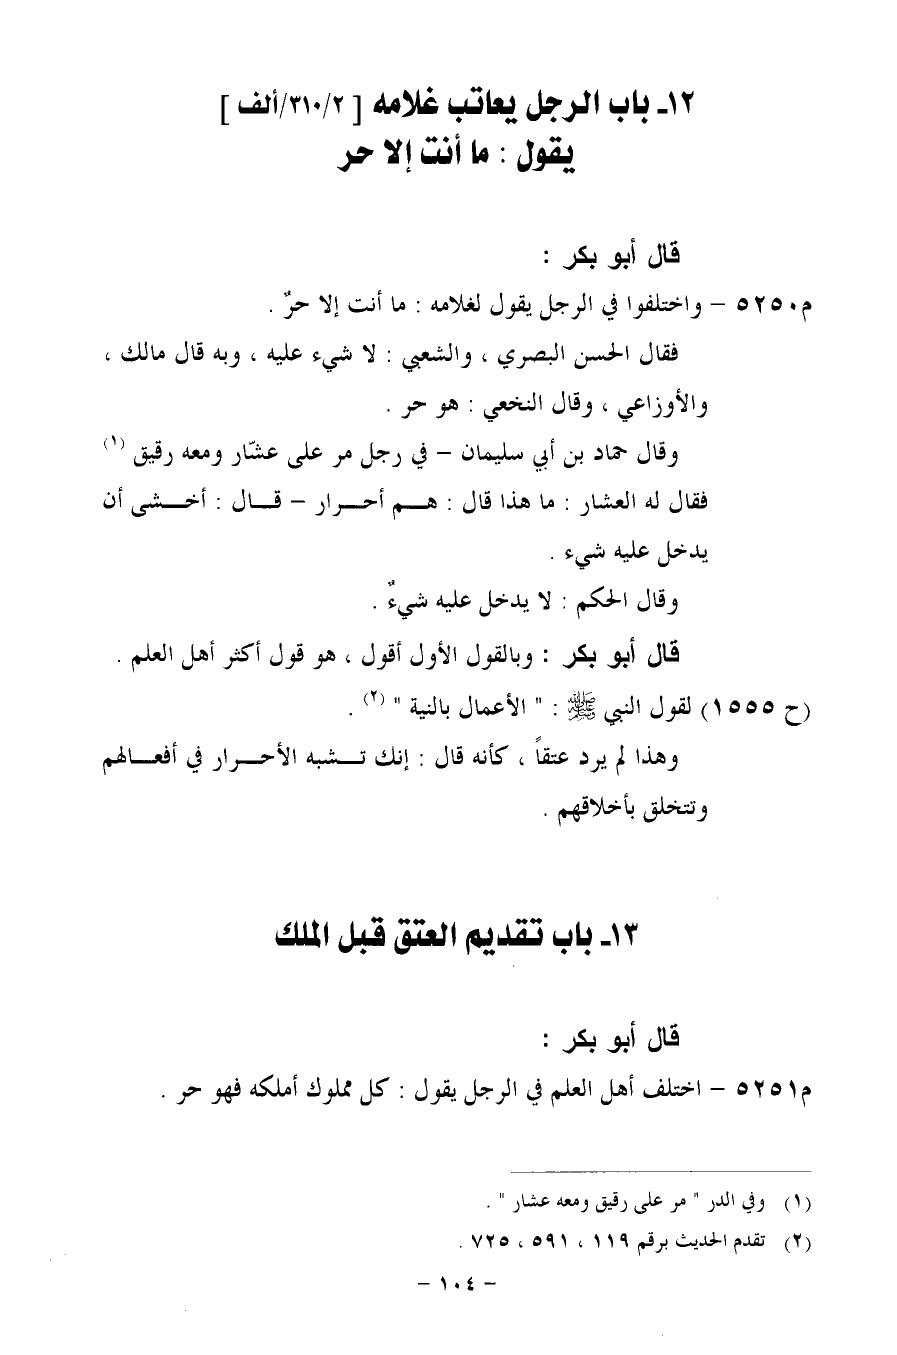 ١٢ـ باب الرجل يعاتب غلامه [ ٣١٠/٢/ألف ]
يقول : ما أنت إلا حر
قال أبو بكر :
م٥٢٥٠ – واختلفوا في الرجل يقول لغلامه : ما أنت إلا حرٌ .
فقال الحسن البصري ، والشعبي : لا شيء عليه ، وبه قال مالك ،
والأوزاعي ، وقال النخعي : هو حر .
وقال حماد بن أبي سليمان – في رجل مر على عشّار ومعه رقيق (١)
فقال له العشار : ما هذا قال : هـــم أحـــرار – قـــال : أخـــشى أن
يدخل عليه شيء .
وقال الحكم : لا يدخل عليه شيءٌ .
قال أبو بكر : وبالقول الأول أقول ، هو قول أكثر أهل العلم .
(ح ١٥٥٥) لقول النبي ﷺ : " الأعمال بالنية " (٢) .
وهذا لم يرد عتقاً ، كأنه قال : إنك تـــشبه الأحـــرار في أفعـــالهم
وتتخلق بأخلاقهم .
١٣ـ باب تقديم العتق قبل الملك
قال أبو بكر :
م٥٢٥١ – اختلف أهل العلم في الرجل يقول : كل مملوك أملكه فهو حر .
(١) وفي الدر " مر على رقيق ومعه عشار " .
(٢) تقدم الحديث برقم ١١٩ ، ٥٩١ ، ٧٢٥ .
– ١٠٤ –